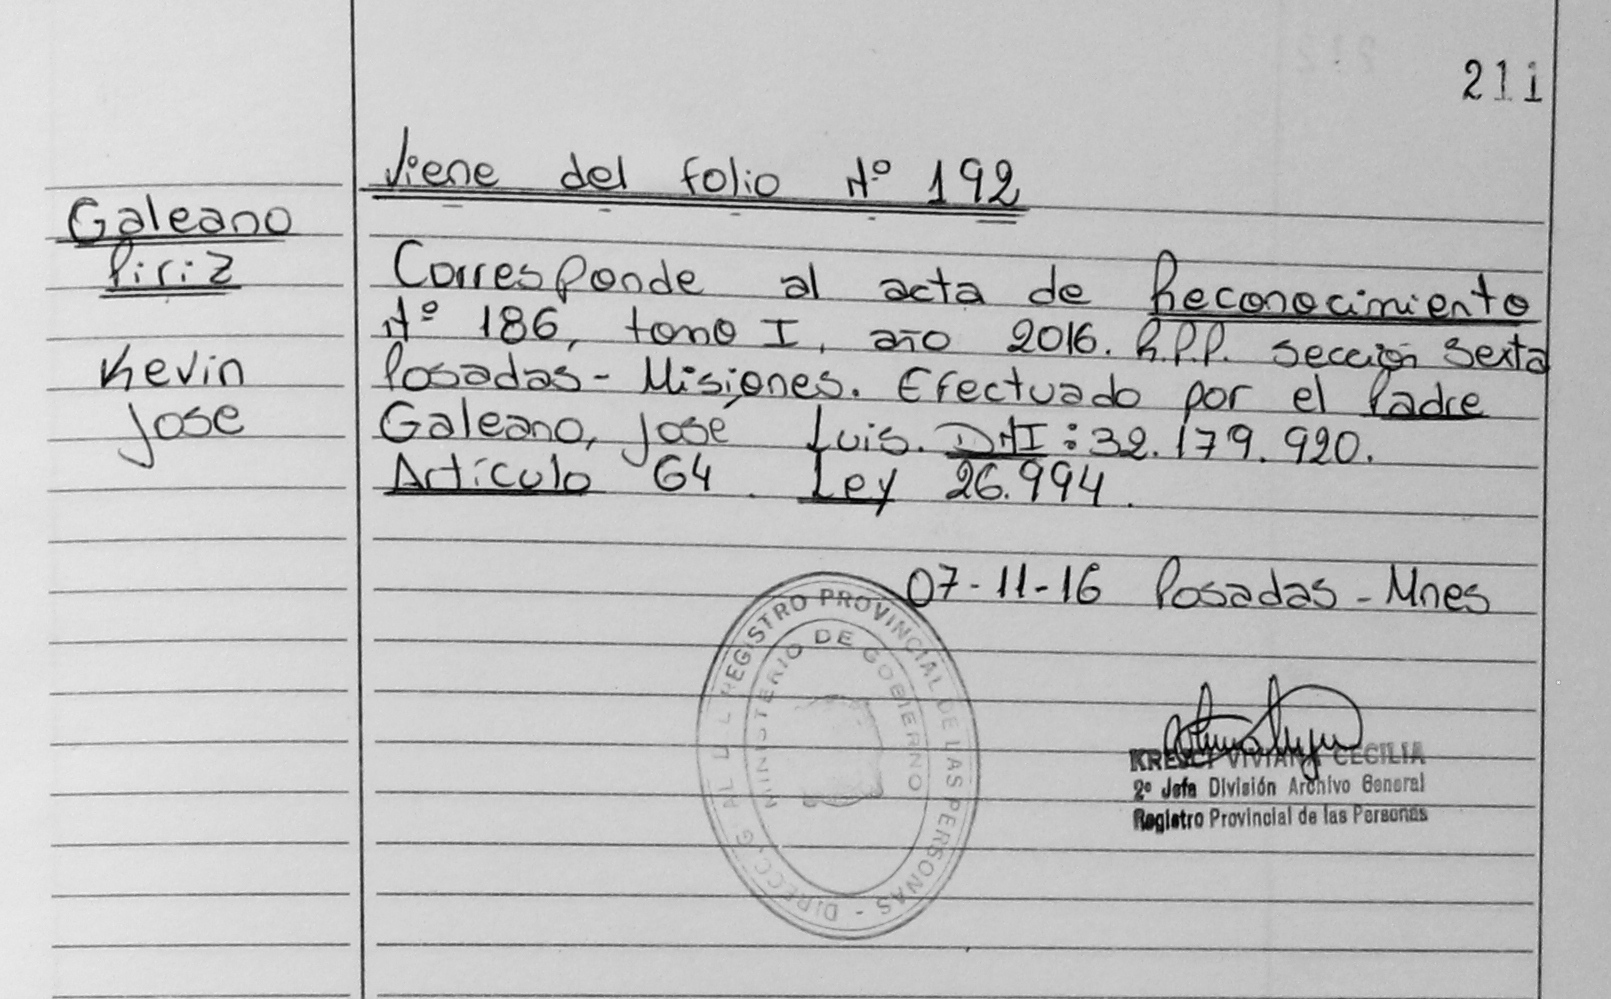 211
Viene del folio Nº 192
Galeano
Piriz
Kevin
José
Corresponde al acta de Reconocimiento
Nº 186, tomo I, año 2016. R.P.P. sección sexta
Posadas - Misiones. Efectuado por el Padre
Galeano, José Luis. DNI: 32.179.920.
Artículo 64. Ley 26.994.
07-11-16 Posadas - Mnes
REGISTRO PROVINCIAL DE LAS PERSONAS - DIRECC. G
MINISTERIO DE GOBIERNO
VIVIANA CECILIA
2º Jefa División Archivo General
Registro Provincial de las Personas